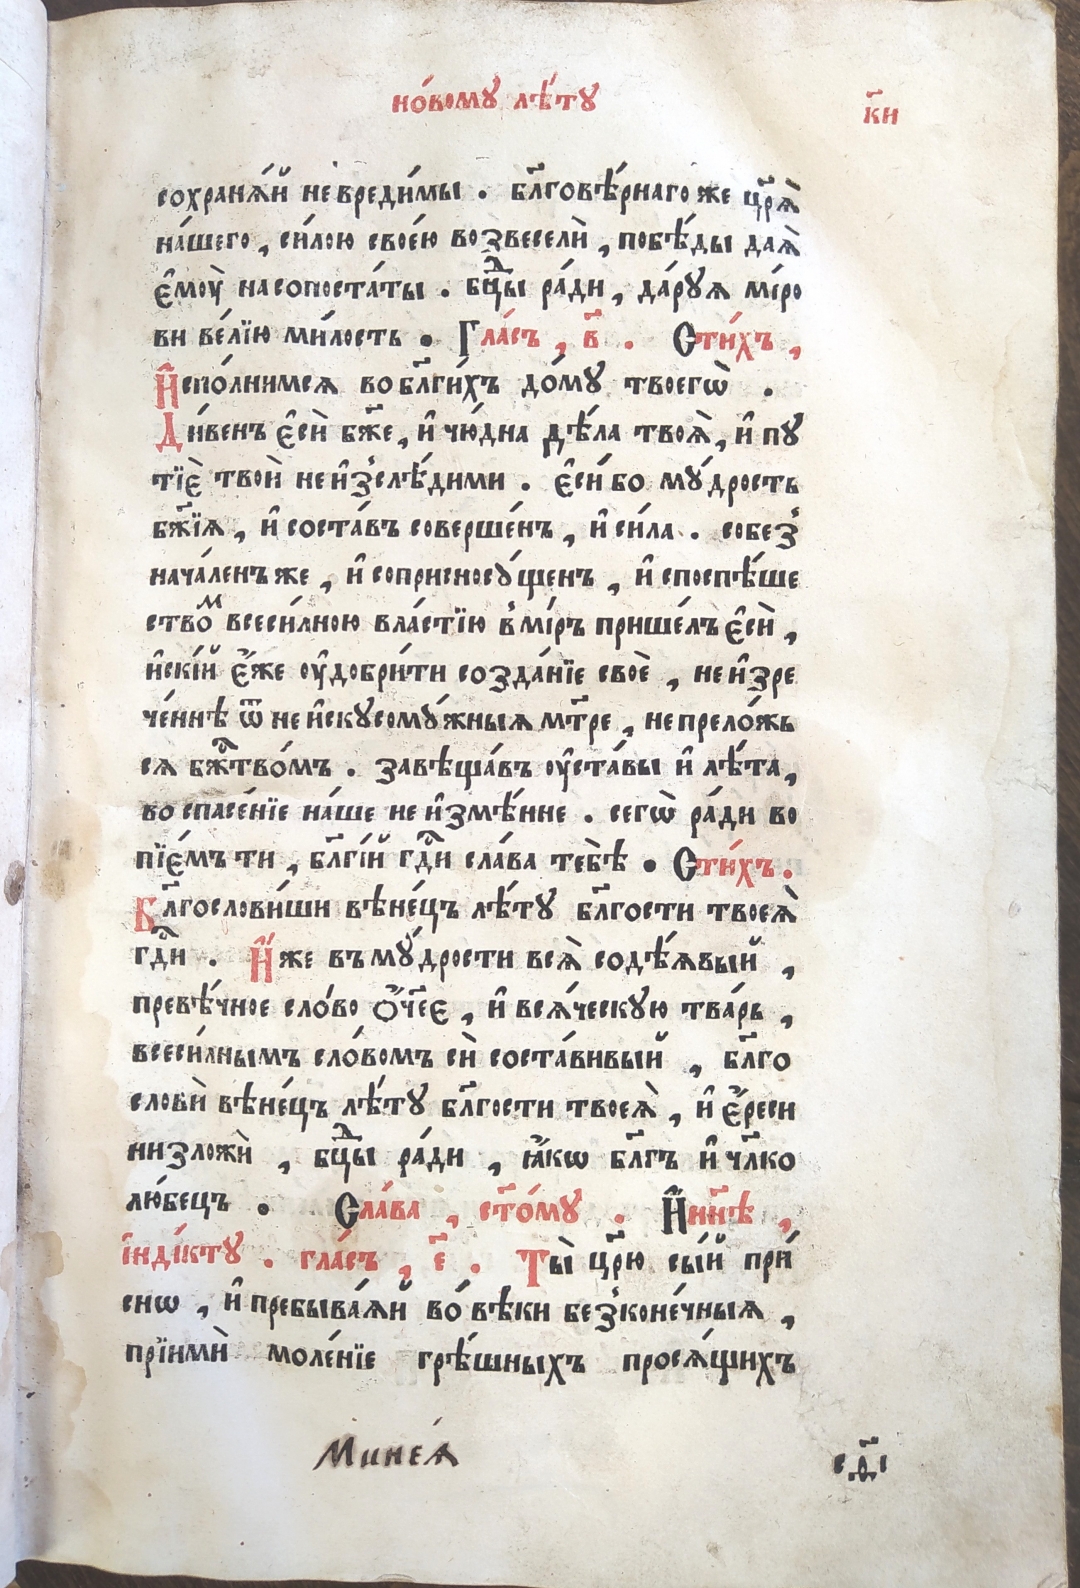 но́вому лѣ́ту
к҃и
сохраня́й не вреди́мы . бл҃говѣ́рнаго же цр҃ѧ̀
на́шего , си́лою свое́ю возвеселѝ , побѣ́ды даѧ̀
є҆моу̀ на сопоста́ты . бцⷣы ра́ди , да́руѧ мі́ро
ви ве́лїю ми́лость . Гла́съ , в҃ . Сти́хъ ,
И҆спо́лнимсѧ во бл҃ги́хъ до́му твоегѡ̀ .
Ди́венъ є҆сѝ бж҃е , и҆ чю́дна дѣ́ла твоѧ̀ , и҆ пу
тїѐ твоѝ не и҆зслѣ́дими . є҆си́ бо му́дрость
бж҃їѧ , и҆ соста́въ соверше́нъ , и҆ си́ла . собез̾
нача́ленъ же , и҆ соприсносу́щенъ , и҆ споспѣ́ше
ствоⷨ всеси́лною вла́стїю в̾мі́ръ прише́лъ є҆сѝ ,
и҆скі́й є҆́же оу҆добри́ти созда́нїе своѐ , не и҆зре
че́ннѣ ѿ не и҆скусому́жныѧ мт҃ре , не прело́жь
сѧ бжⷭ҇тво́мъ . завѣща́въ оу҆ста́вы и҆ лѣ́та ,
во спасе́нїе на́ше не и҆змѣ́нне . сегѡ̀ ра́ди во
пїе́мъ ти , бл҃гі́й гдⷭ҇и сла́ва тебѣ̀ . Сти́хъ .
Бл҃гослови́ши вѣне́цъ лѣ́ту бл҃гости твоеѧ̀
гдⷭ҇и . И҆́же въ му́дрости всѧ̀ содѣ́ѧвый ,
превѣ́чное сло́во ѻ҆́ч҃ее , и҆ всѧ́ческую тва́рь ,
всеси́лнымъ сло́вомъ сѝ соста́вивый , бл҃го
словѝ вѣне́цъ лѣ́ту бл҃гости твоеѧ̀ , и҆ є҆́реси
низложѝ , бцⷣы ра́ди , ꙗ҆́кѡ бл҃гъ и҆ чл҃ко
лю́бецъ . Сла́ва , ст҃о́му . И҆ ни́н҃ѣ ,
і҆нді́кту . гла́съ , є҃ . Ты̀ цр҃ю сы́й при́
снѡ , и҆ пребыва́ѧй во́ вѣки без̾коне́чныѧ ,
прїимѝ моле́нїе грѣ́шныхъ прося́щихъ
Мине́ѧ